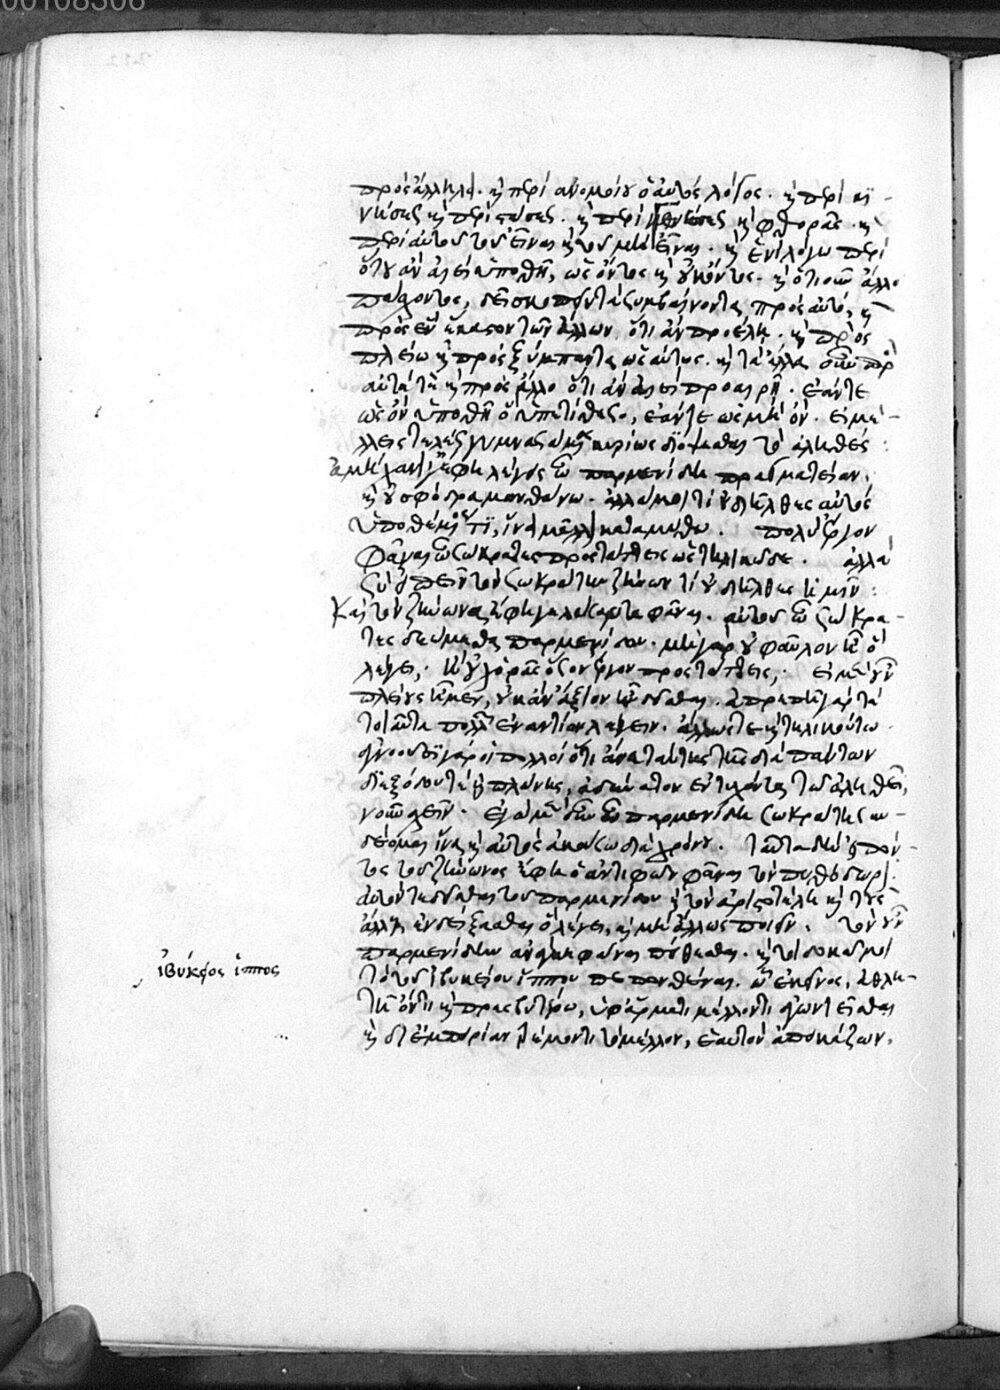 00108306
πρὸς ἄλληλα. καὶ περὶ ἀνομοίου ὁ αὐτὸς λόγος. καὶ περὶ κι-
νήσεως καὶ περὶ στάσεως. καὶ περὶ γενέσεως καὶ φθορᾶς. καὶ
περὶ αὐτοῦ τοῦ εἶναι καὶ τοῦ μὴ εἶναι. καὶ ἑνὶ λόγω περὶ
ὅτου ἂν ἀεὶ ὑποθῆ, ὡς ὄντος καὶ οὐκ ὄντος. καὶ ὁτιοῦν ἄλλο
πάθος πάσχοντος, δεῖ σκοπεῖν τὰ συμβαίνοντα πρὸς αὑτό, καὶ
πρὸς ἓν ἕκαστον τῶν ἄλλων ὅτι ἂν προέλη. καὶ πρὸς
πλείω καὶ πρὸς ξύμπαντα ὡσαύτως. καὶ τἆλλα αὖ πρὸς
αὑτά τε καὶ πρὸς ἄλλο ὅτι ἂν ἀεὶ προαιρῆ. ἐάντε
ὡς ὂν ὑποθῆ ὃ ὑπετίθεσο, ἐάντε ὡς μὴ ὄν. εἰ μέ-
λλεις τελέως γυμνασάμενος κυρίως διόψεσθαι τὸ ἀληθές:
ἀμήχανον ἔφη λέγεις ὦ παρμενίδη πραγματείαν.
καὶ οὐ σφόδρα μανθάνω. ἀλλά μοι τί οὐ διῆλθες αὐτὸς
ὑποθέμενός τι, ἵνα μᾶλλον καταμάθω. πολὺ ἔργον
φάναι ὦ σώκρατες προστάττεις ὡς τηλικῶδε. ἀλλὰ
σὺ εἰπεῖν τὸν σωκράτη ζήνων τί οὐ διῆλθες ἡμῖν:
Καὶ τὸν ζήνωνα ἔφη γελάσαντα φάναι. αὐτοῦ ὦ σώκρα-
τες δεώμεθα παρμενίδου. μὴ γὰρ οὐ φαῦλον ἦ ὃ
λέγει. ἢ οὐχ ὁρᾶς ὅσον ἔργον προστάττεις; εἰ μὲν οὖν
πλείους ἦμεν, οὐκ ἂν ἄξιον ἦν δεῖσθαι. ἀπρεπῆ γὰρ τὰ
τοιαῦτα πολλῶν ἐναντίον λέγειν. ἄλλως τε καὶ τηλικούτω.
ἀγνοοῦσι γὰρ οἱ πολλοὶ ὅτι ἄνευ ταύτης τῆς διὰ πάντων
διεξόδου τε καὶ πλάνης, ἀδύνατον ἐντυχόντα τῶ ἀληθεῖ,
νοῦν σχεῖν. ἐγὼ μὲν οὖν ὦ παρμενίδη σωκράτει συν-
δέομαι ἵνα καὶ αὐτὸς ἀκούσω διὰ χρόνου. ταῦτα δὴ εἰπόν-
τος τοῦ ζήνωνος ἔφη ὁ ἀντιφῶν φάναι τὸν πυθόδωρον
αὐτόν τε δεῖσθαι τοῦ παρμενίδου καὶ τὸν ἀριστοτέλη καὶ τοὺς
ἄλλους ἐνδείξασθαι ὃ λέγει, καὶ μὴ ἄλλως ποιεῖν. τὸν οὖν
παρμενίδην ἀνάγκη φάναι πείθεσθαι. καίτοι δοκῶ μοι
τὸ τοῦ ἰβυκείου ἵππου πεπονθέναι. ὧ ἐκεῖνος, ἀθλη-
τῆ ὄντι καὶ πρεσβυτέρω, ὑφ' ἅρματι μέλλοντι ἀγωνιεῖσθαι
καὶ δι' ἐμπειρίαν τρέμοντι τὸ μέλλον, ἑαυτὸν ἀπεικάζων,
ἰβύκειος ἵππος